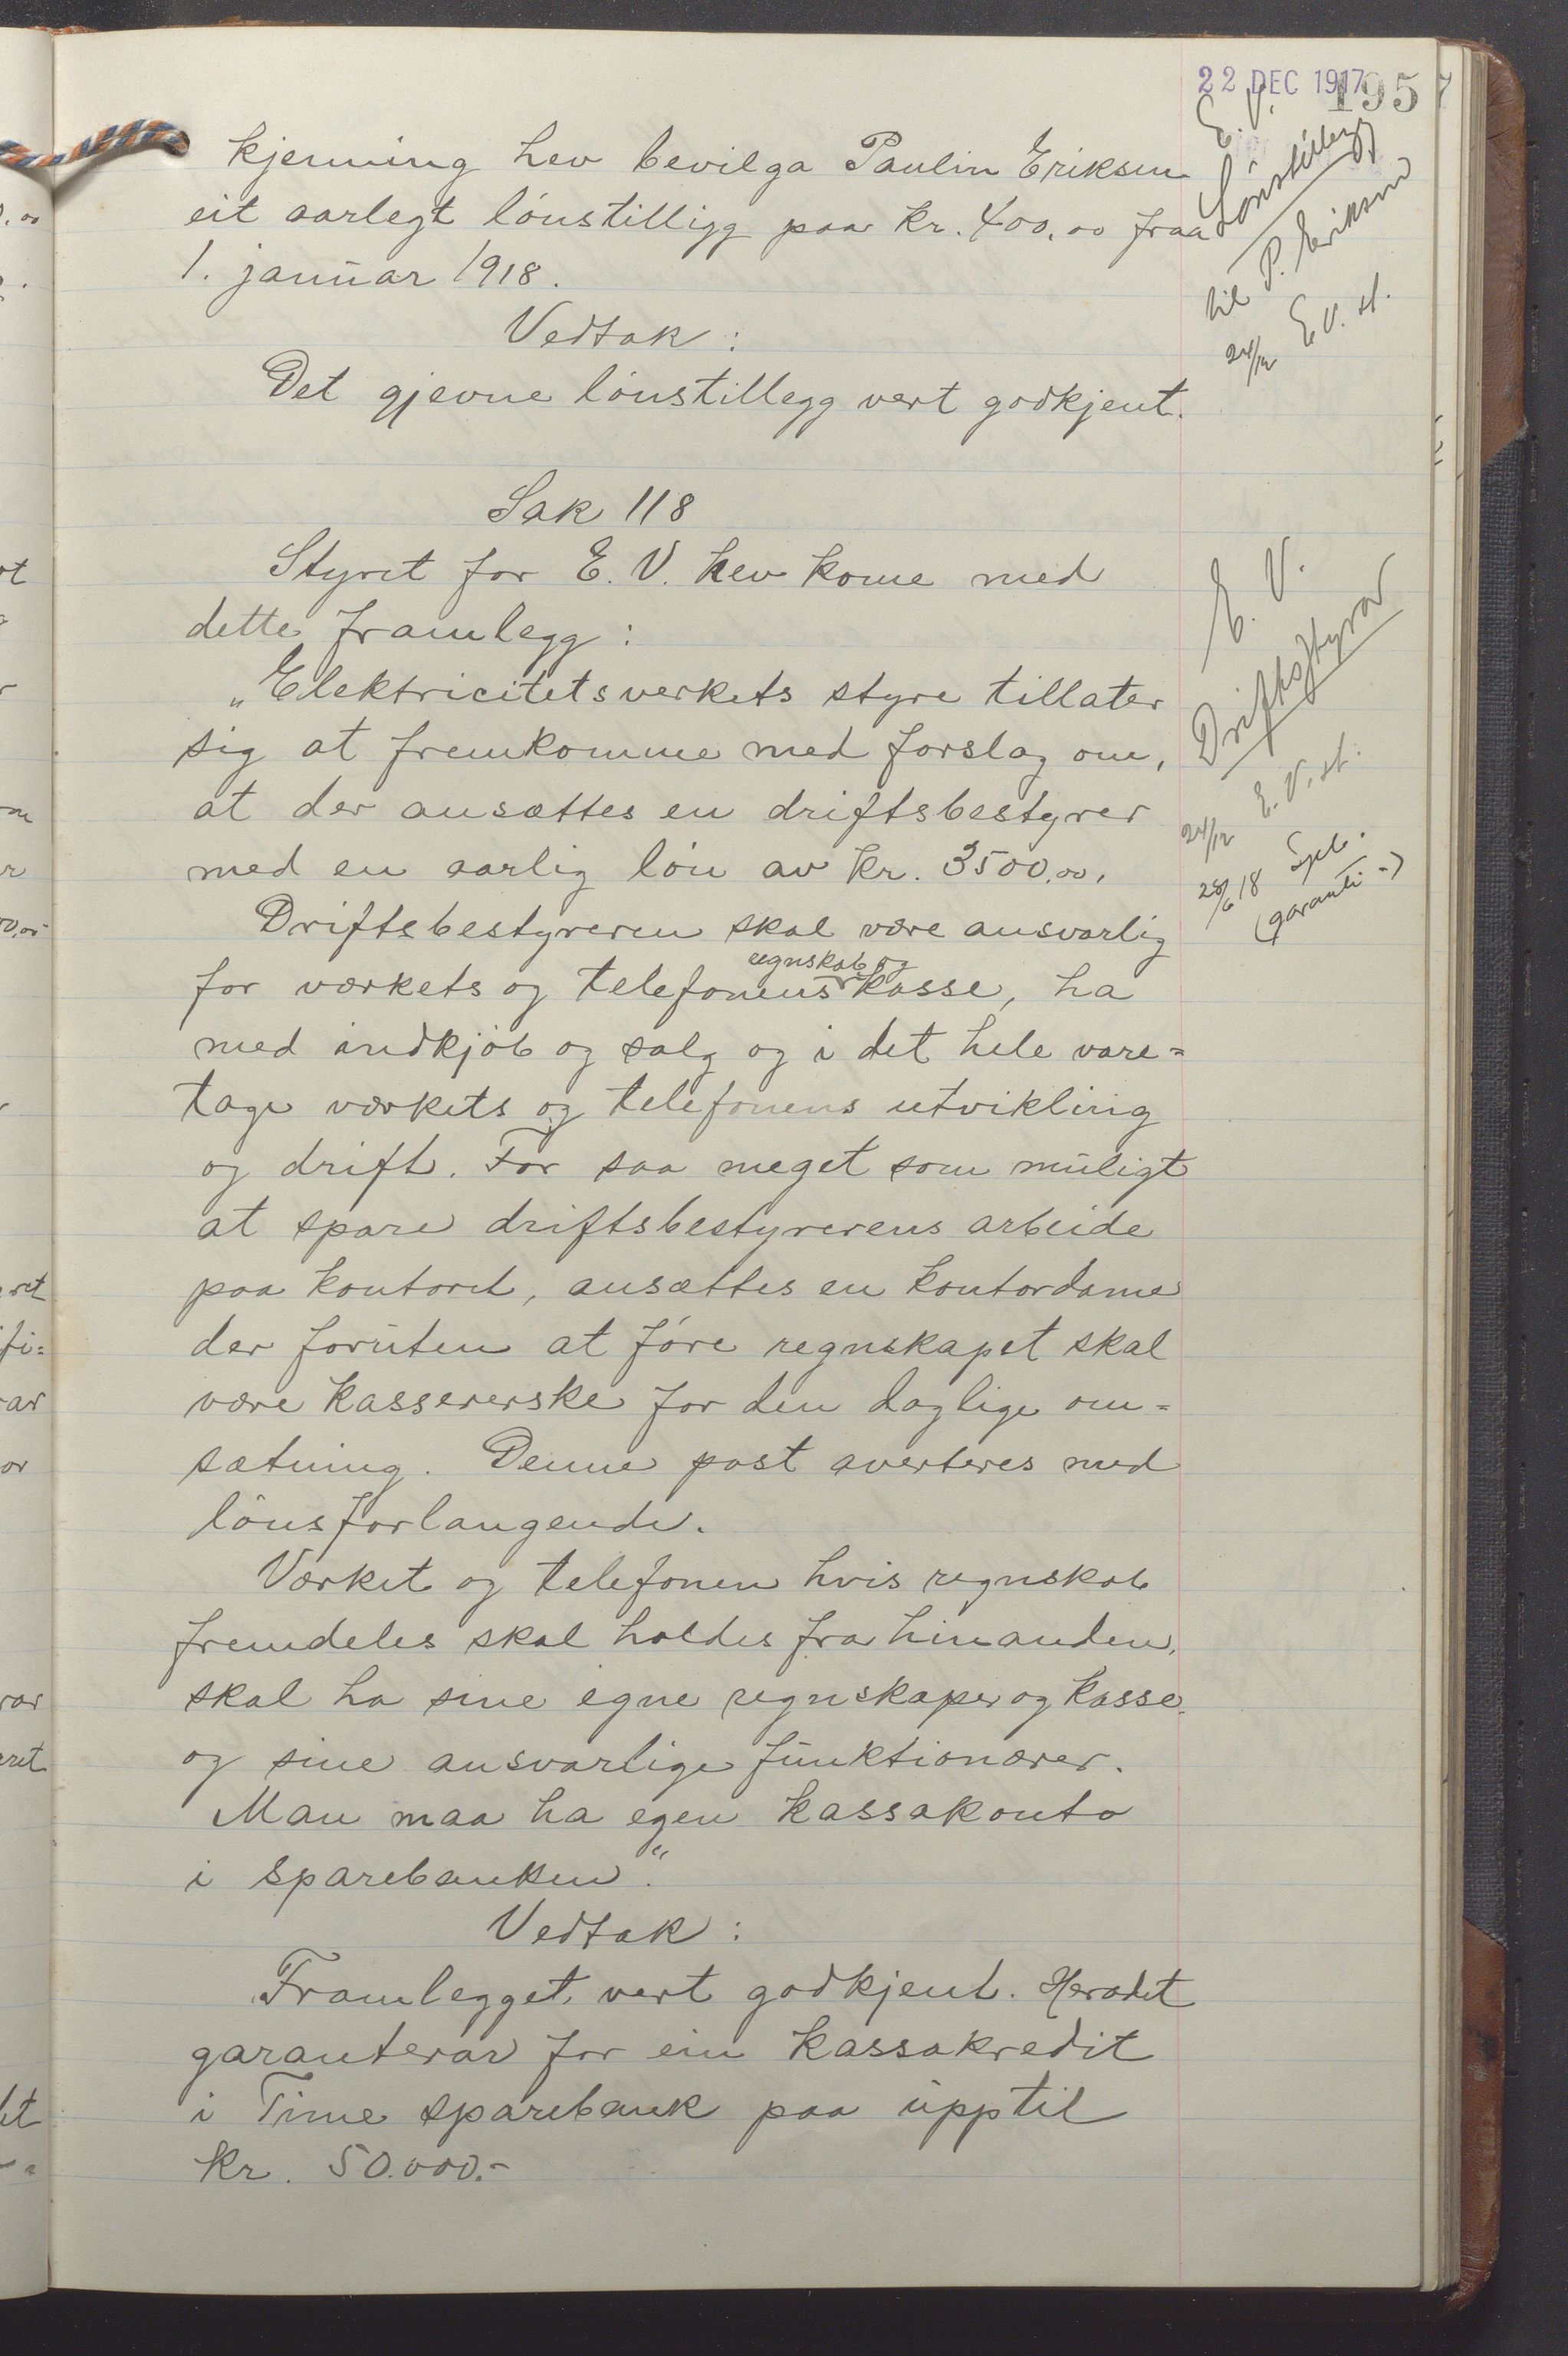 22 DEC 1917
195
kjenning hev bevilga Paulin Eriksen
eit aarlegt lønstilligg paa kr. 400,00 fraa
1. januar 1918.
Vedtak:
Det gjevne lønstillegg vert godkjent.
E. V.
Lønstillegg
til P. Eriksen
24/12 E. V. st.
Sak 118
Styret for E. V. hev kome med
dette framlegg:
"Elektricitetsverkets styre tillater
sig at fremkomme med forslag om,
at der ansættes en driftsbestyrer
med en aarlig løn av kr. 3500,00.
Driftsbestyreren skal være ansvarlig
regnskab og
for værkets og telefonens kasse, ha
med indkjøb og salg og i det hele vare=
tage værkets og telefonens utvikling
og drift. For saa meget som muligt
at spare driftsbestyrerens arbeide
paa kontoret, ansættes en kontordame
der foruten at føre regnskapet skal
være kassererske for den daglige om=
sætning. Denne post averteres med
lønsforlangende.
Værket og telefonen hvis regnskab
fremdeles skal holdes fra hinanden,
skal ha sine egne regnskaper og kasse,
og sine ansvarlige funktionærer.
Man maa ha egen kassakonto
i sparebanken".
Vedtak:
Framlegget vert godkjent. Heradet
garanterar for ein kassakredit
i Time sparebank paa upptil
kr. 50.000.-
E. V.
Driftsstyrar
24/12 E. V. st.
28/6 18 Spb.
(garanti -)